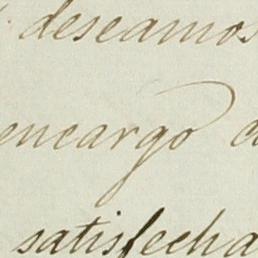 deseamos
encargo
satisfecha